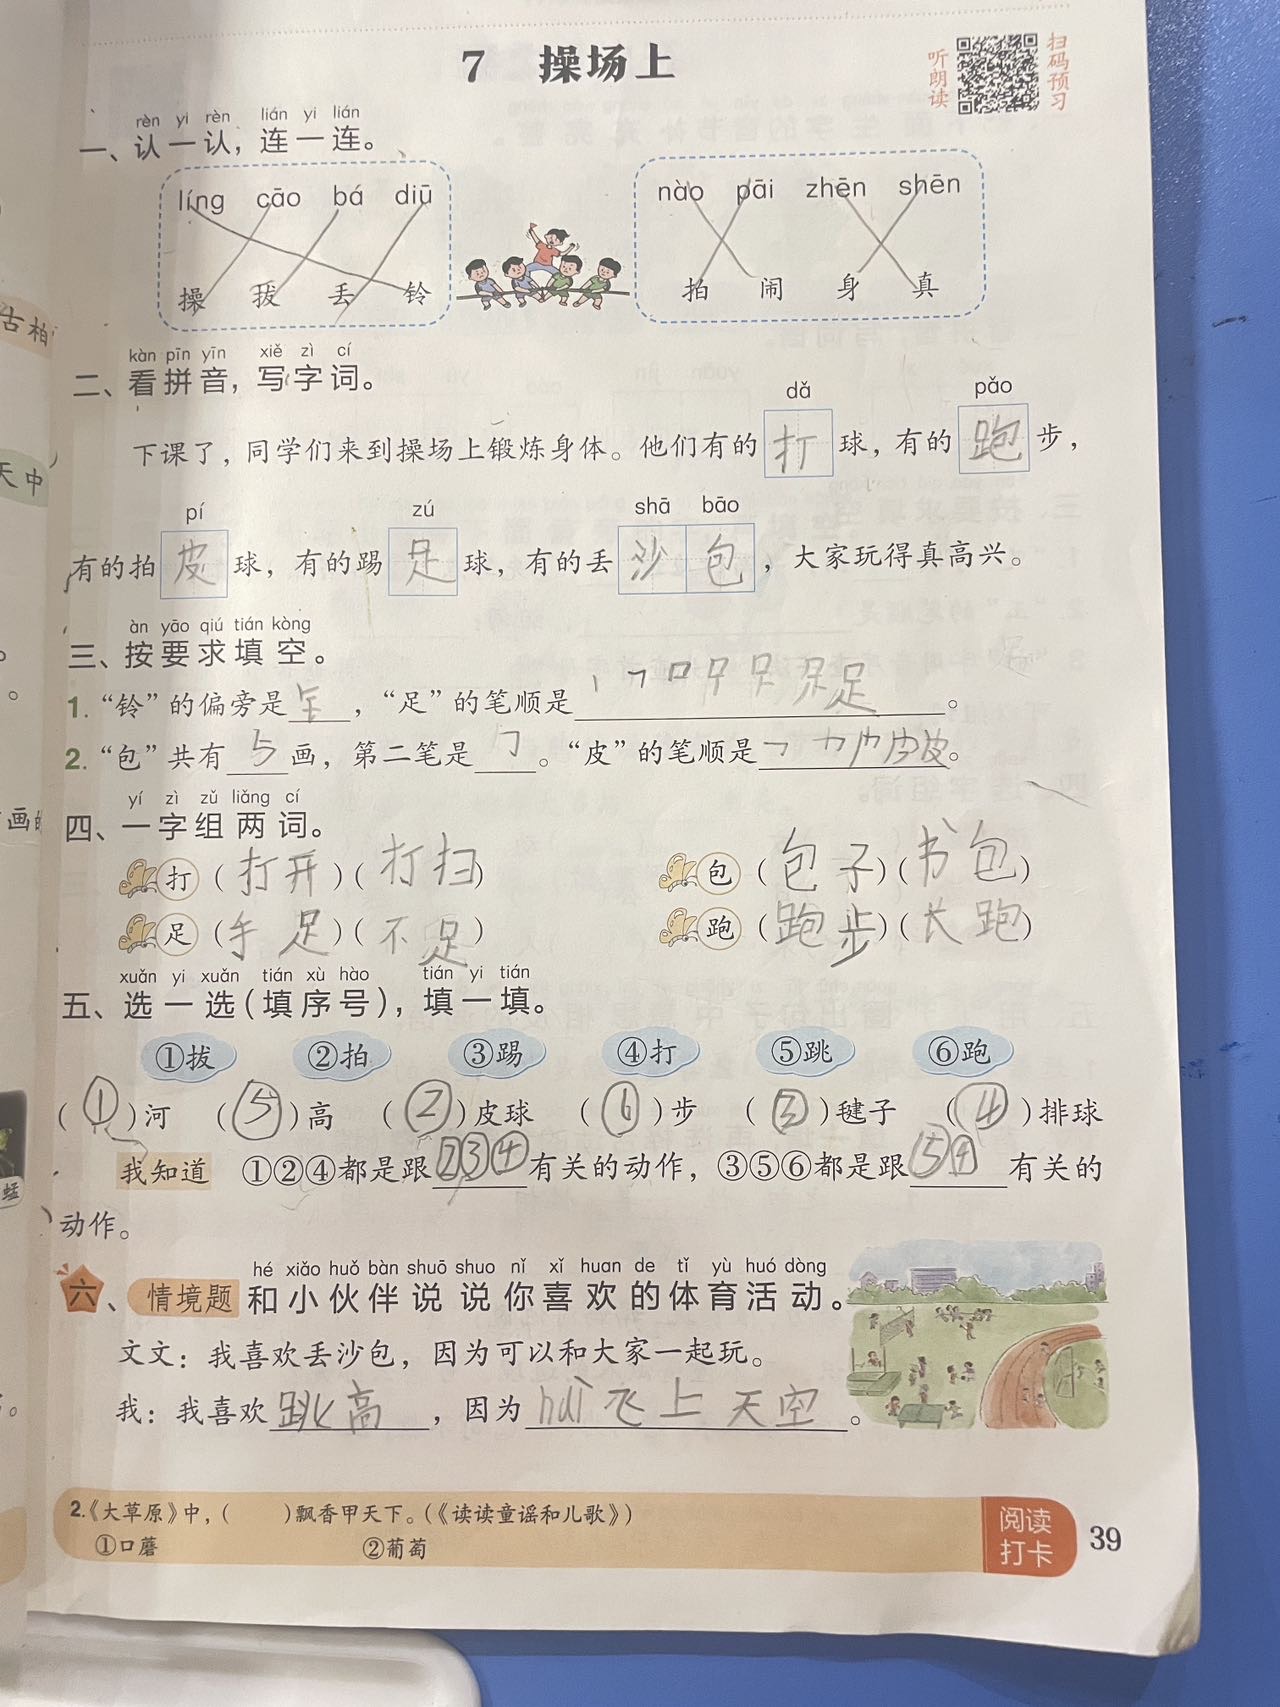 7 操场上
听朗读
扫码预习
rèn yi rèn lián yi lián
一、认一认，连一连。
líng cāo bá diū
操 拔 丢 铃
nào pāi zhēn shēn
拍 闹 身 真
kàn pīn yīn xiě zì cí
二、看拼音，写字词。
dǎ pǎo
下课了，同学们来到操场上锻炼身体。他们有的打球，有的跑步，
pí zú shā bāo
有的拍皮球，有的踢足球，有的丢沙包，大家玩得真高兴。
àn yāo qiú tián kòng
三、按要求填空。
1. “铃”的偏旁是钅，“足”的笔顺是丨 ㄱ 口 𠯁 足 足 足。
2. “包”共有5画，第二笔是㇆。“皮”的笔顺是㇇ 广 皮 皮。
yí zì zǔ liǎng cí
四、一字组两词。
打（打开）（打扫） 包（包子）（书包）
足（手足）（不足） 跑（跑步）（长跑）
xuǎn yi xuǎn tián xù hào tián yi tián
五、选一选（填序号），填一填。
①拔 ②拍 ③踢 ④打 ⑤跳 ⑥跑
（①）河 （⑤）高 （②）皮球 （⑥）步 （③）毽子 （④）排球
我知道 ①②④都是跟②③④有关的动作，③⑤⑥都是跟⑤④有关的
动作。
hé xiǎo huǒ bàn shuō shuo nǐ xǐ huan de tǐ yù huó dòng
六、情境题 和小伙伴说说你喜欢的体育活动。
文文：我喜欢丢沙包，因为可以和大家一起玩。
我：我喜欢跳高，因为huì飞上天空。
2.《大草原》中，（ ）飘香甲天下。（《读读童谣和儿歌》）
①口蘑 ②葡萄
阅读
打卡
39